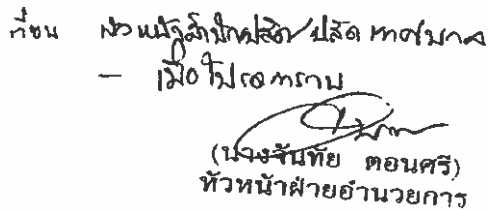 เรียน หัวหน้าสำนักปลัด/ปลัดเทศบาล
- เพื่อโปรดทราบ
(นางจันทัย ตอนศรี)
หัวหน้าฝ่ายอำนวยการ